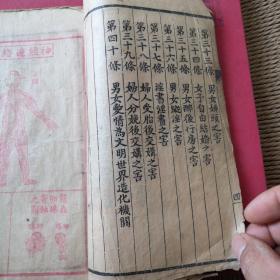 第三十三條 男女姘頭之害
第三十四條 女子自由結婚之害
第三十五條 男女醉後行房之害
第三十六條 男女縱淫之害
第三十七條 淫書淫畫之害
第三十八條 婦人受胎後交媾之害
第三十九條 婦人分娩後交媾之害
第四十條 男女愛情爲文明世界造化機關
四